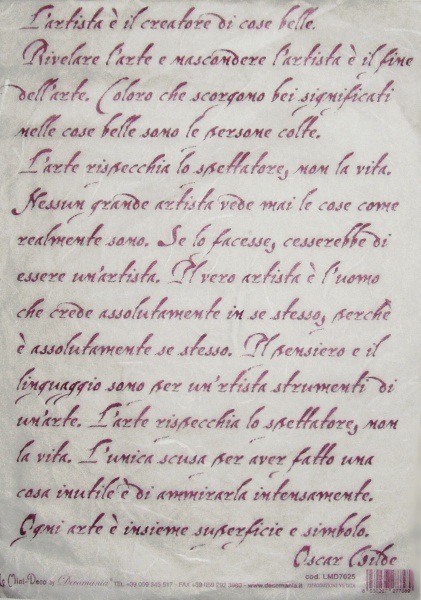 L'artista è il creatore di cose belle.
Rivelare l'arte e nascondere l'artista è il fine
dell'arte. Coloro che scorgono bei significati
nelle cose belle sono le persone colte.
L'arte rispecchia lo spettatore, non la vita.
Nessun grande artista vede mai le cose come
realmente sono. Se lo facesse, cesserebbe di
essere un'artista. Il vero artista è l'uomo
che crede assolutamente in se stesso, perchè
è assolutamente se stesso. Il pensiero e il
linguaggio sono per un'rtista strumenti di
un'arte. L'arte rispecchia lo spettatore, non
la vita. L'unica scusa per aver fatto una
cosa inutile è di ammirarla intensamente.
Ogni arte è insieme superficie e simbolo.
Oscar Wilde
Mini-Deco by Decomania TEL +39 059 - FAX +39 059 www.decomania.it cod. LMD7025